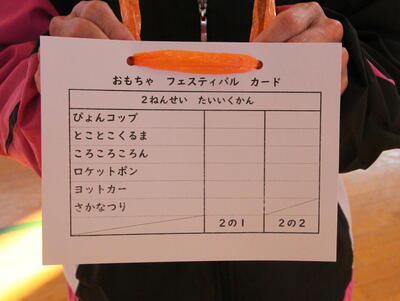 おもちゃ フェスティバル カード
２ねんせい たいいくかん
ぴょんコップ
とことこくるま
ころころころん
ロケットポン
ヨットカー
さかなつり
２の１ ２の２